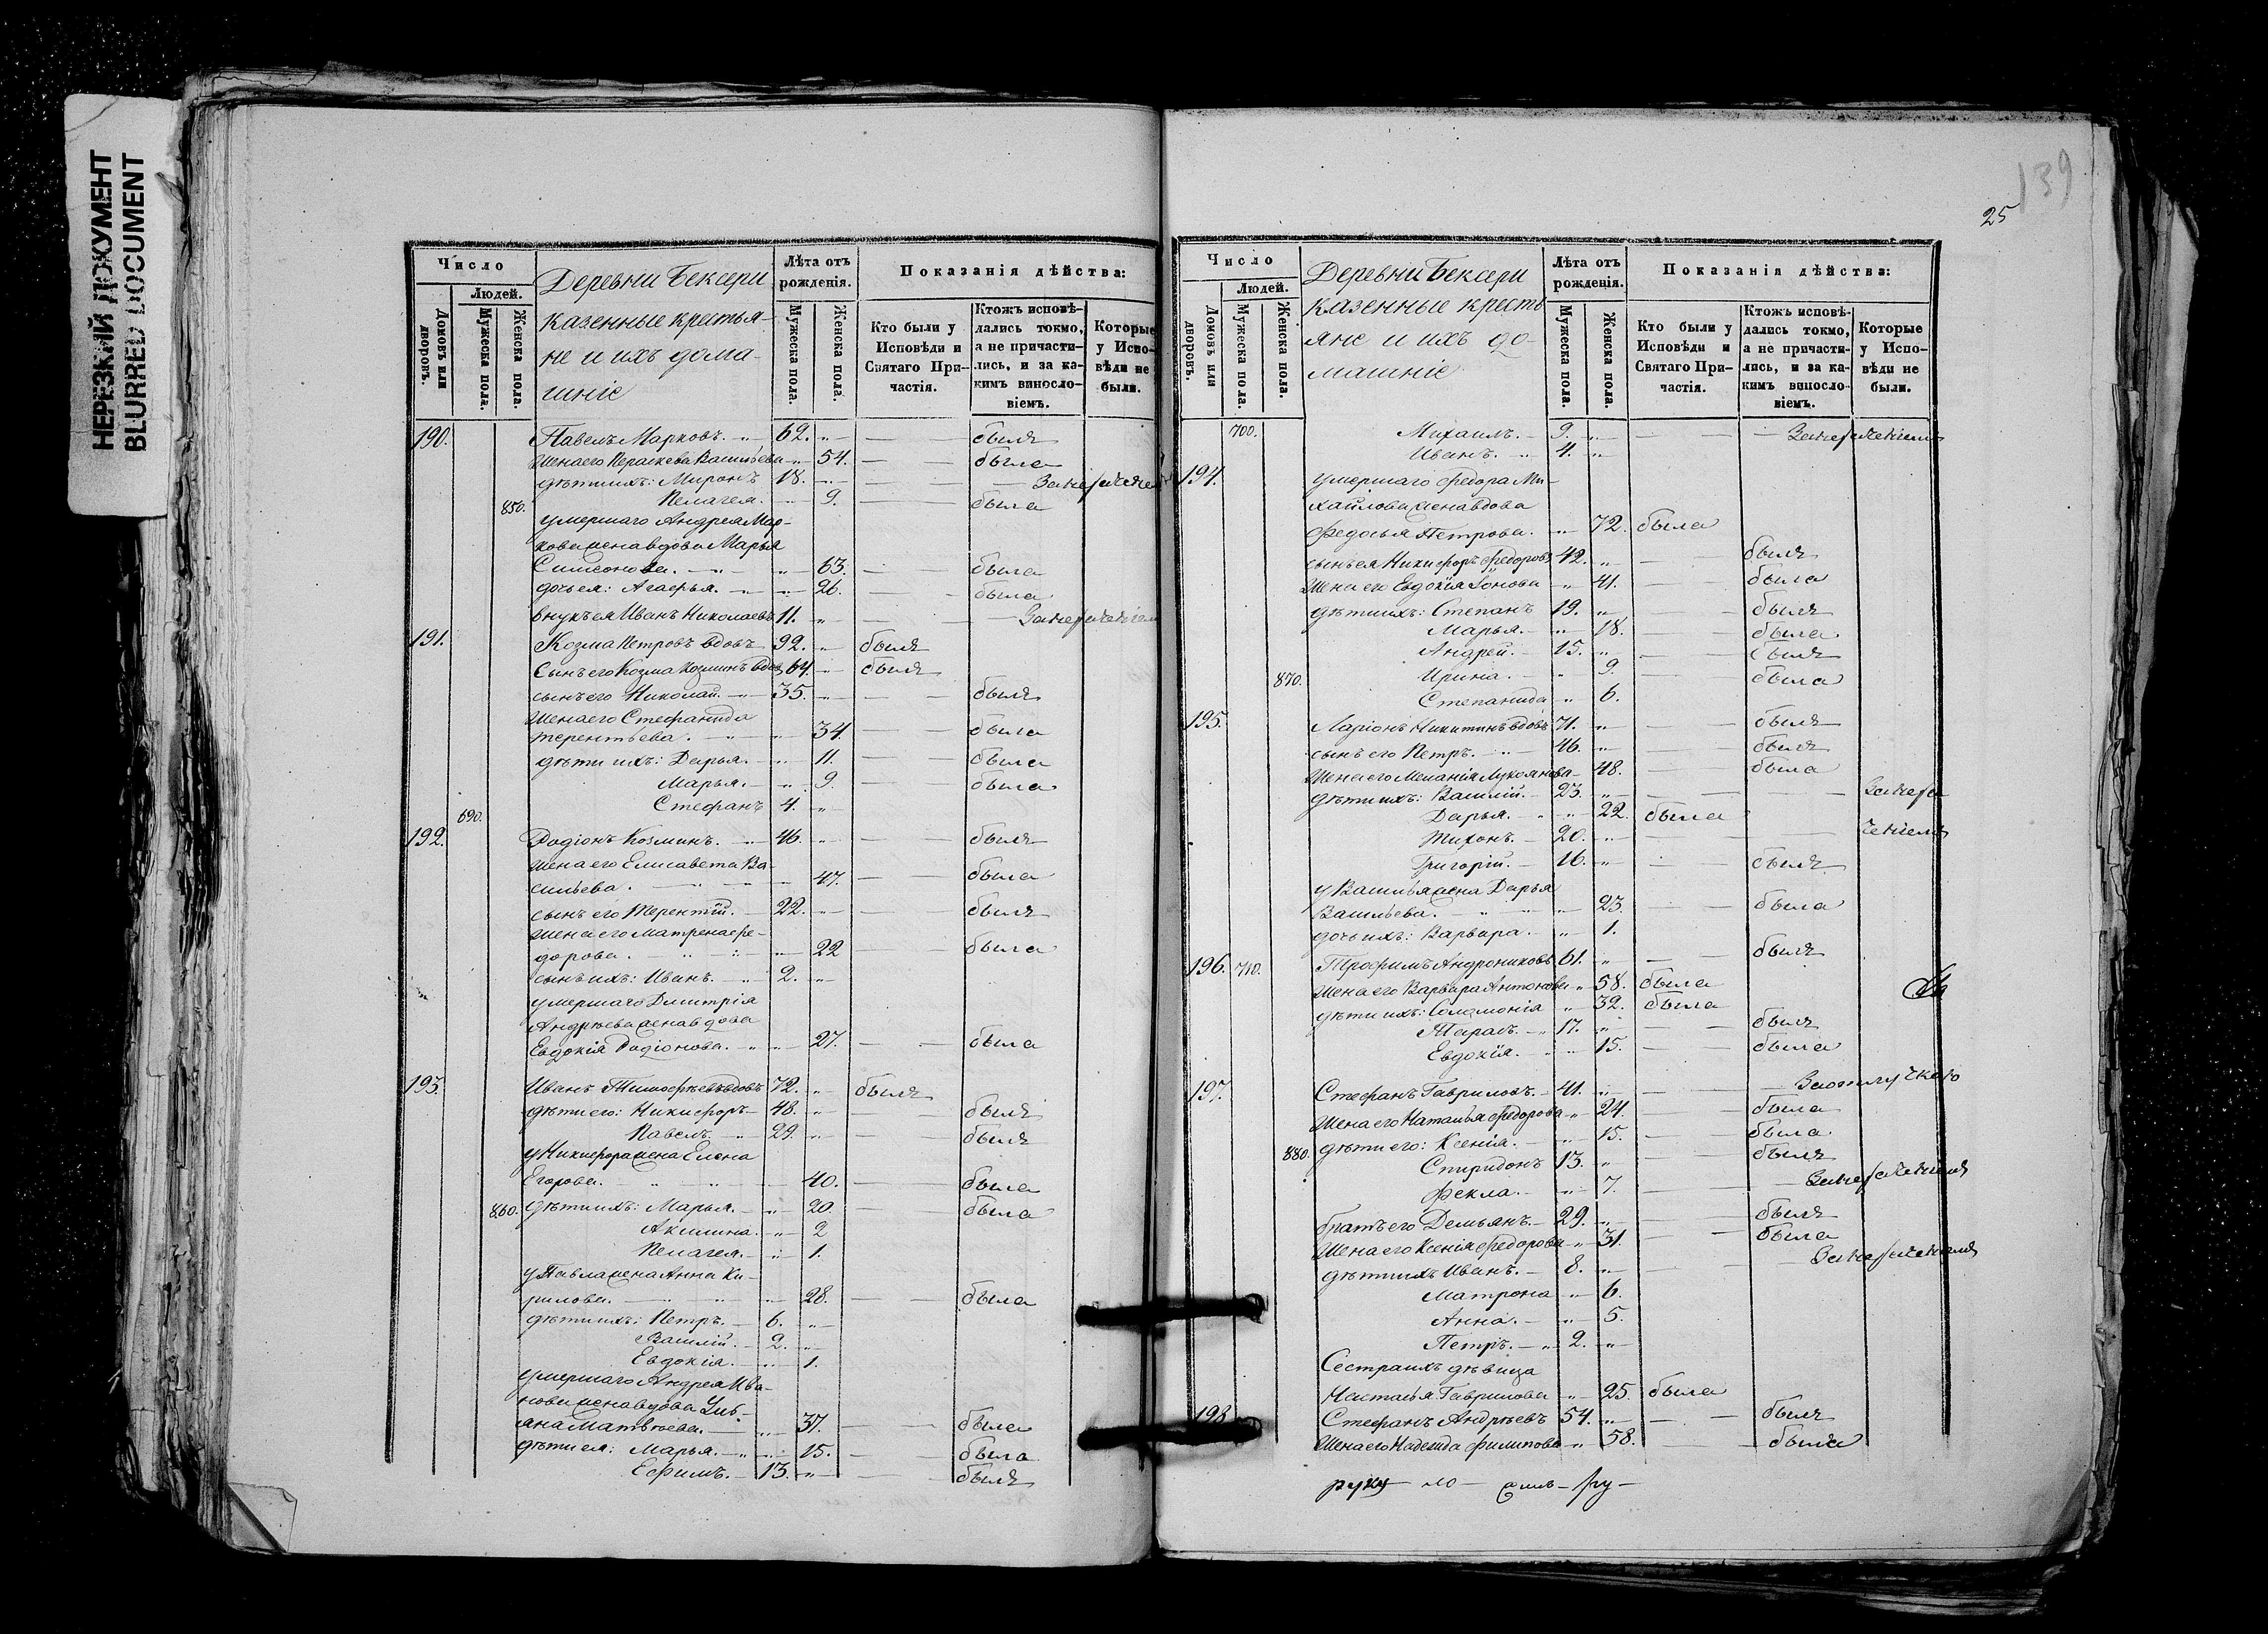 НЕРЕЗКИЙ ДОКУМЕНТ
BLURRED DOCUMENT
Число
Людей.
Домовъ или дворовъ.
Мужеска пола.
Женска пола.
Деревни Бексери
казенные крестья-
не и ихъ дома-
шніе
Лѣта отъ рожденія.
Мужеска пола.
Женска пола.
Показанія дѣйства:
Кто были у Исповѣди и Святаго При-частія.
Ктожъ исповѣ-дались токмо, а не причасти-лись, и за ка-кимъ виносло-віемъ.
Которые у Испо-вѣди не были.
190. Павелъ Марковъ. 62. былъ
Жена его Параскева Васильева 54. была
дѣти ихъ: Миронъ 18.
850. Пелагея. 9. была
умершаго Андрея Мар-
кова жена вдова Марья
Симеонова. 63. была
дочь ея: Агафья. 26. была
внукъ ея Иванъ Николаевъ 11.
191. Козма Петровъ вдовъ 92. былъ
Сынъ его Козма Козминъ вдов 64. былъ
сынъ его Николай. 35. былъ
Жена его Стефанида
терентьева. 34 была
дѣти ихъ: Дарья. 11. была
Марья. 9. была
690. Стефанъ 4.
192. Родіонъ Козминъ. 46. былъ
жена его Елисавета Ва-
сильева. 47. была
сынъ его Терентій. 22. былъ
жена его Матрена Фе-
дорова. 22 была
сынъ ихъ: Иванъ. 2.
умершаго Дмитрія
Андрѣева жена вдова
Евдокія Родіонова. 27. была
193. Иванъ Тимофѣевъ вдовъ 72. былъ
дѣти его: Никифоръ 48. былъ
Павелъ 29. былъ
у Никифора жена Елена
Егорова. 40. была
860. дѣти ихъ: Марья. 20. была
Акилина. 2
Пелагея. 1.
у Павла жена Анна Ки-
рилова. 28. была
дѣти ихъ: Петръ. 6.
Василій. 2.
Евдокія. 1.
умершаго Андрея Ива-
нова жена вдова Уль-
яна Матвѣева. 37. была
дѣти ея: Марья. 15. была
Ефимъ. 13. былъ
139
25
Число
Людей.
Домовъ или дворовъ.
Мужеска пола.
Женска пола.
Деревни Бексери
казенные кресть
яне и ихъ до-
машніе
Лѣта отъ рожденія.
Мужеска пола.
Женска пола.
Показанія дѣйства:
Кто были у Исповѣди и Святаго При-частія.
Ктожъ исповѣ-дались токмо, а не причасти-лись, и за ка-кимъ виносло-віемъ.
Которые у Испо-вѣди не были.
700. Михаилъ. 9.
Иванъ. 4.
194. умершаго Федора Ми-
хайлова жена вдова
Федосья Петрова. 72. была
сынъ ея Никифоръ Федоровъ 42. былъ
Жена его Евдокія Іонова 41. была
дѣти ихъ: Степанъ 19. былъ
Марья. 18. была
Андрей. 15. былъ
870. Ирина. 9. была
Степанида 6.
195. Ларіонъ Никитинъ вдовъ 71. былъ
сынъ его Петръ. 46. былъ
Жена его Меланія Лукоянова 48. была
дѣти ихъ: Василій. 23.
Дарья. 22. была
Тихонъ. 20.
Григорій. 16. былъ
у Василья жена Дарья
Васильева. 23. была
дочь ихъ: Варвара. 1.
196. 710. Трофимъ Андрониковъ 61. былъ
Жена его Варвара Антонова 58. была
дѣти ихъ: Соломонія 32. была
Тарасъ. 17. былъ
Евдокія. 15. была
197. Стефанъ Гавриловъ. 41.
Жена его Наталья Федорова 24. была
880. дѣти его: Ксенія. 15. была
Спиридонъ 13. былъ
Фекла. 7.
братъ его Демьянъ. 29. былъ
Жена его Ксенія Федорова 31. была
дѣти ихъ Иванъ. 8.
Матрона 6.
Анна. 5.
Петръ. 2.
Сестра ихъ дѣвица
Настасья Гаврилова 25. была
198. Стефанъ Андрѣевъ 54. былъ
Жена его Надежда Филипова 58. была